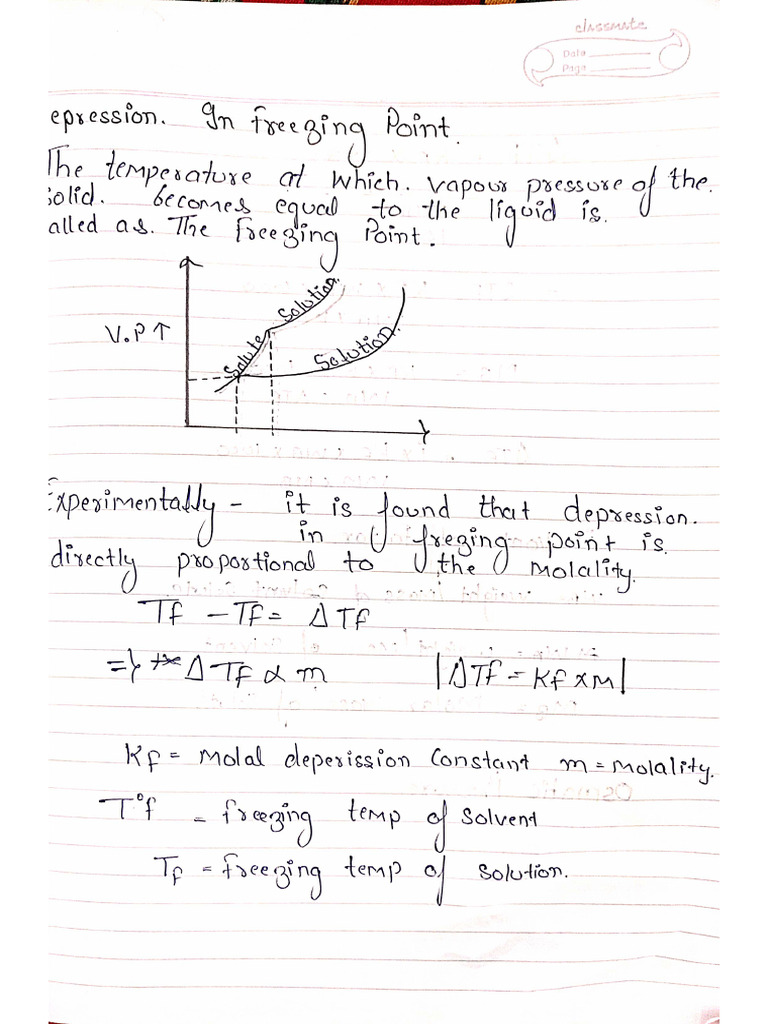 classmate
Date
Page
epression. In freezing Point.
The temperature at which. vapour pressure of the.
solid. becomes equal to the liquid is.
alled as. The freezing Point.
V.P↑
Solute
Solution.
Solution.
Experimentally - it is found that depression.
in freezing point is.
directly proportional to the molality.
Tf - Tf = ΔTf
=> ΔTf α m |ΔTf = Kf × M|
Kf = Molal deperission Constant m = Molality.
T°f = freezing temp of Solvent
Tf = freezing temp of Solution.